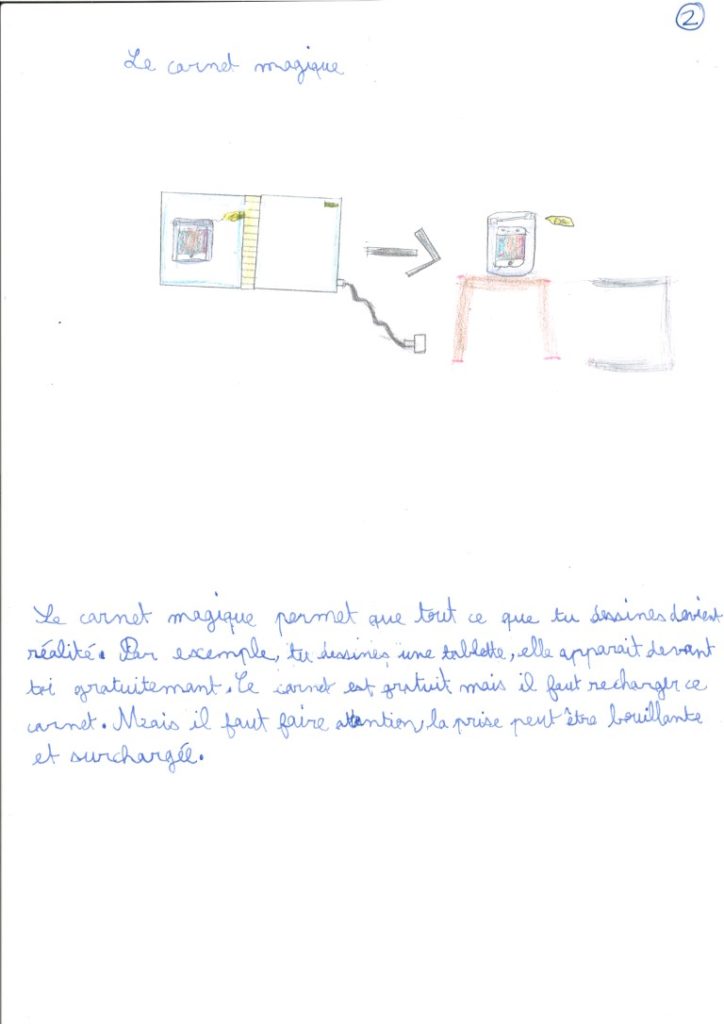 2
Le carnet magique
Le carnet magique permet que tout ce que tu dessines devient
réalité. Par exemple, tu dessines une tablette, elle apparait devant
toi gratuitemant. Le carnet est gratuit mais il faut recharger ce
carnet. Mais il faut faire attention, la prise peut être bouillante
et surchargée.